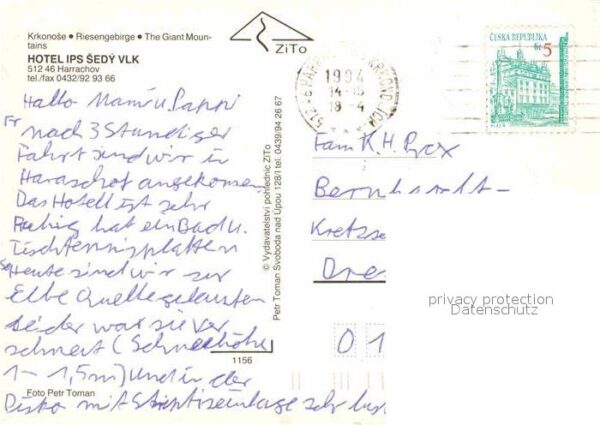 Krkonoše • Riesengebirge • The Giant Moun-
tains
HOTEL IPS ŠEDÝ VLK
512 46 Harrachov
tel./fax 0432/92 93 66
ZiTo
1994
18.-4
ČESKÁ REPUBLIKA
Kč 5
PLZEŇ
Hallo Mami u. Pappi
Fr nach 3 Stundiger
Fahrt sind wir in
Haraschof angekommen
Das Hotell ist sehr
Ruhig hat ein Bad u.
Tischtennisplatten
So Heute sind wir zur
Elbe Quelle gelaufen
Leider war sie ver
schneit (Schneehöhe
1 - 1,5m) Und in der
Disko mit Striptiseeinlage sehr lus
Foto Petr Toman
© Vydavatelství pohlednic ZiTo
Petr Toman Svoboda nad Úpou 128/I tel. 0439/94 26 67
1156
Fam K.H.
Bernhardt-
Kretzsc
Dre
privacy protection
Datenschutz
0 1